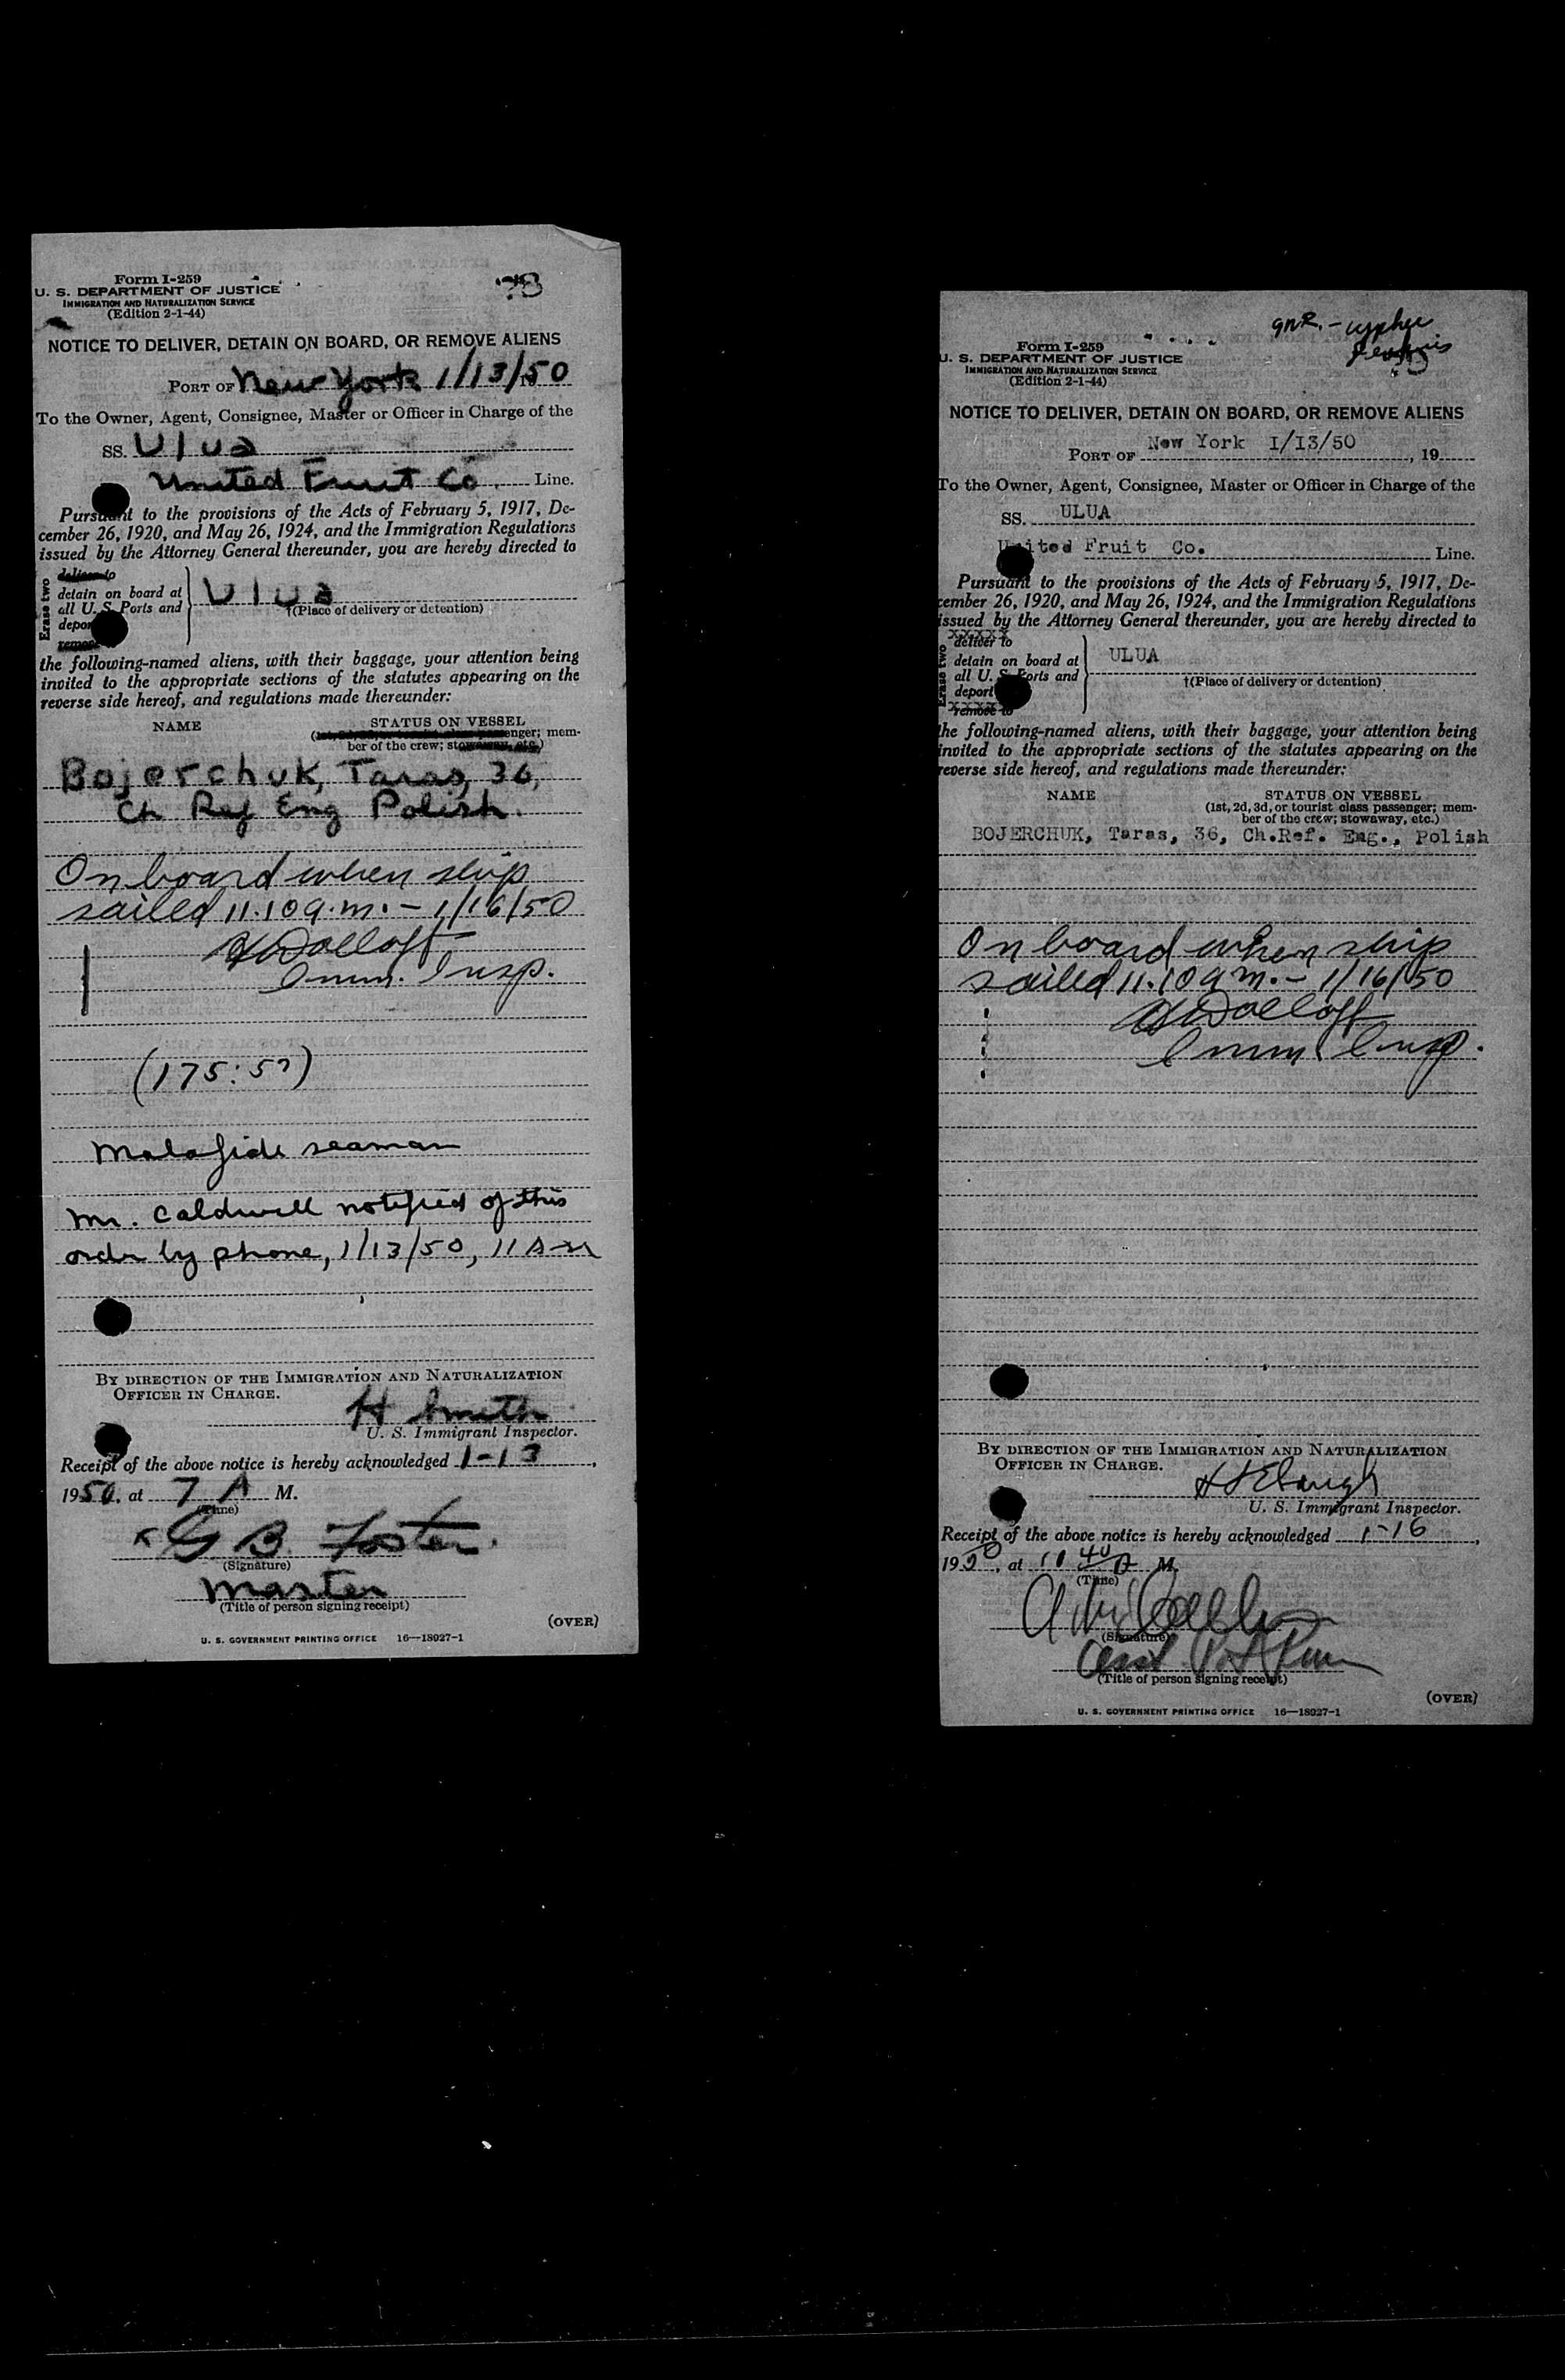 Form I-259
U. S. DEPARTMENT OF JUSTICE
IMMIGRATION AND NATURALIZATION SERVICE
(Edition 2-1-44)
NOTICE TO DELIVER, DETAIN ON BOARD, OR REMOVE ALIENS
PORT OF New York 1/13/50
To the Owner, Agent, Consignee, Master or Officer in Charge of the
SS. Ulua
United Fruit Co. Line.
Pursuant to the provisions of the Acts of February 5, 1917, De-
cember 26, 1920, and May 26, 1924, and the Immigration Regulations
issued by the Attorney General thereunder, you are hereby directed to
Erase two
deliver to
detain on board at
all U. S. Ports and
deport
remove to
Ulua
†(Place of delivery or detention)
the following-named aliens, with their baggage, your attention being
invited to the appropriate sections of the statutes appearing on the
reverse side hereof, and regulations made thereunder:
NAME STATUS ON VESSEL
(1st, 2d, 3d, or tourist class passenger; mem-
ber of the crew; stowaway, etc.)
Bojerchuk, Taras, 36,
Ch Ref Eng Polish.
On board when ship
sailed 11.10 a.m. - 1/16/50
Dolloff
Imm. Insp.
(175:57)
Malafide seaman
Mr. Caldwell notified of this
order by phone, 1/13/50, 11 AM
BY DIRECTION OF THE IMMIGRATION AND NATURALIZATION
OFFICER IN CHARGE.
H Smith
U. S. Immigrant Inspector.
Receipt of the above notice is hereby acknowledged 1-13,
1950, at 7 A M.
(Time)
x G B Foster
(Signature)
Master
(Title of person signing receipt)
(OVER)
U. S. GOVERNMENT PRINTING OFFICE 16—18927-1
Form I-259
U. S. DEPARTMENT OF JUSTICE
IMMIGRATION AND NATURALIZATION SERVICE
(Edition 2-1-44)
NOTICE TO DELIVER, DETAIN ON BOARD, OR REMOVE ALIENS
PORT OF New York 1/13/50, 19
To the Owner, Agent, Consignee, Master or Officer in Charge of the
SS. ULUA
United Fruit Co. Line.
Pursuant to the provisions of the Acts of February 5, 1917, De-
cember 26, 1920, and May 26, 1924, and the Immigration Regulations
issued by the Attorney General thereunder, you are hereby directed to
Erase two
deliver to
detain on board at
all U. S. Ports and
deport
remove to
ULUA
†(Place of delivery or detention)
the following-named aliens, with their baggage, your attention being
invited to the appropriate sections of the statutes appearing on the
reverse side hereof, and regulations made thereunder:
NAME STATUS ON VESSEL
(1st, 2d, 3d, or tourist class passenger; mem-
ber of the crew; stowaway, etc.)
BOJERCHUK, Taras, 36, Ch.Ref. Eng., Polish
On board when ship
sailed 11.10 a m. - 1/16/50
Dolloff
Imm. Insp.
BY DIRECTION OF THE IMMIGRATION AND NATURALIZATION
OFFICER IN CHARGE.
U. S. Immigrant Inspector.
Receipt of the above notice is hereby acknowledged 1-16,
1950, at 10 40 A M.
(Time)
(Signature)
(Title of person signing receipt)
(OVER)
U. S. GOVERNMENT PRINTING OFFICE 16—18927-1